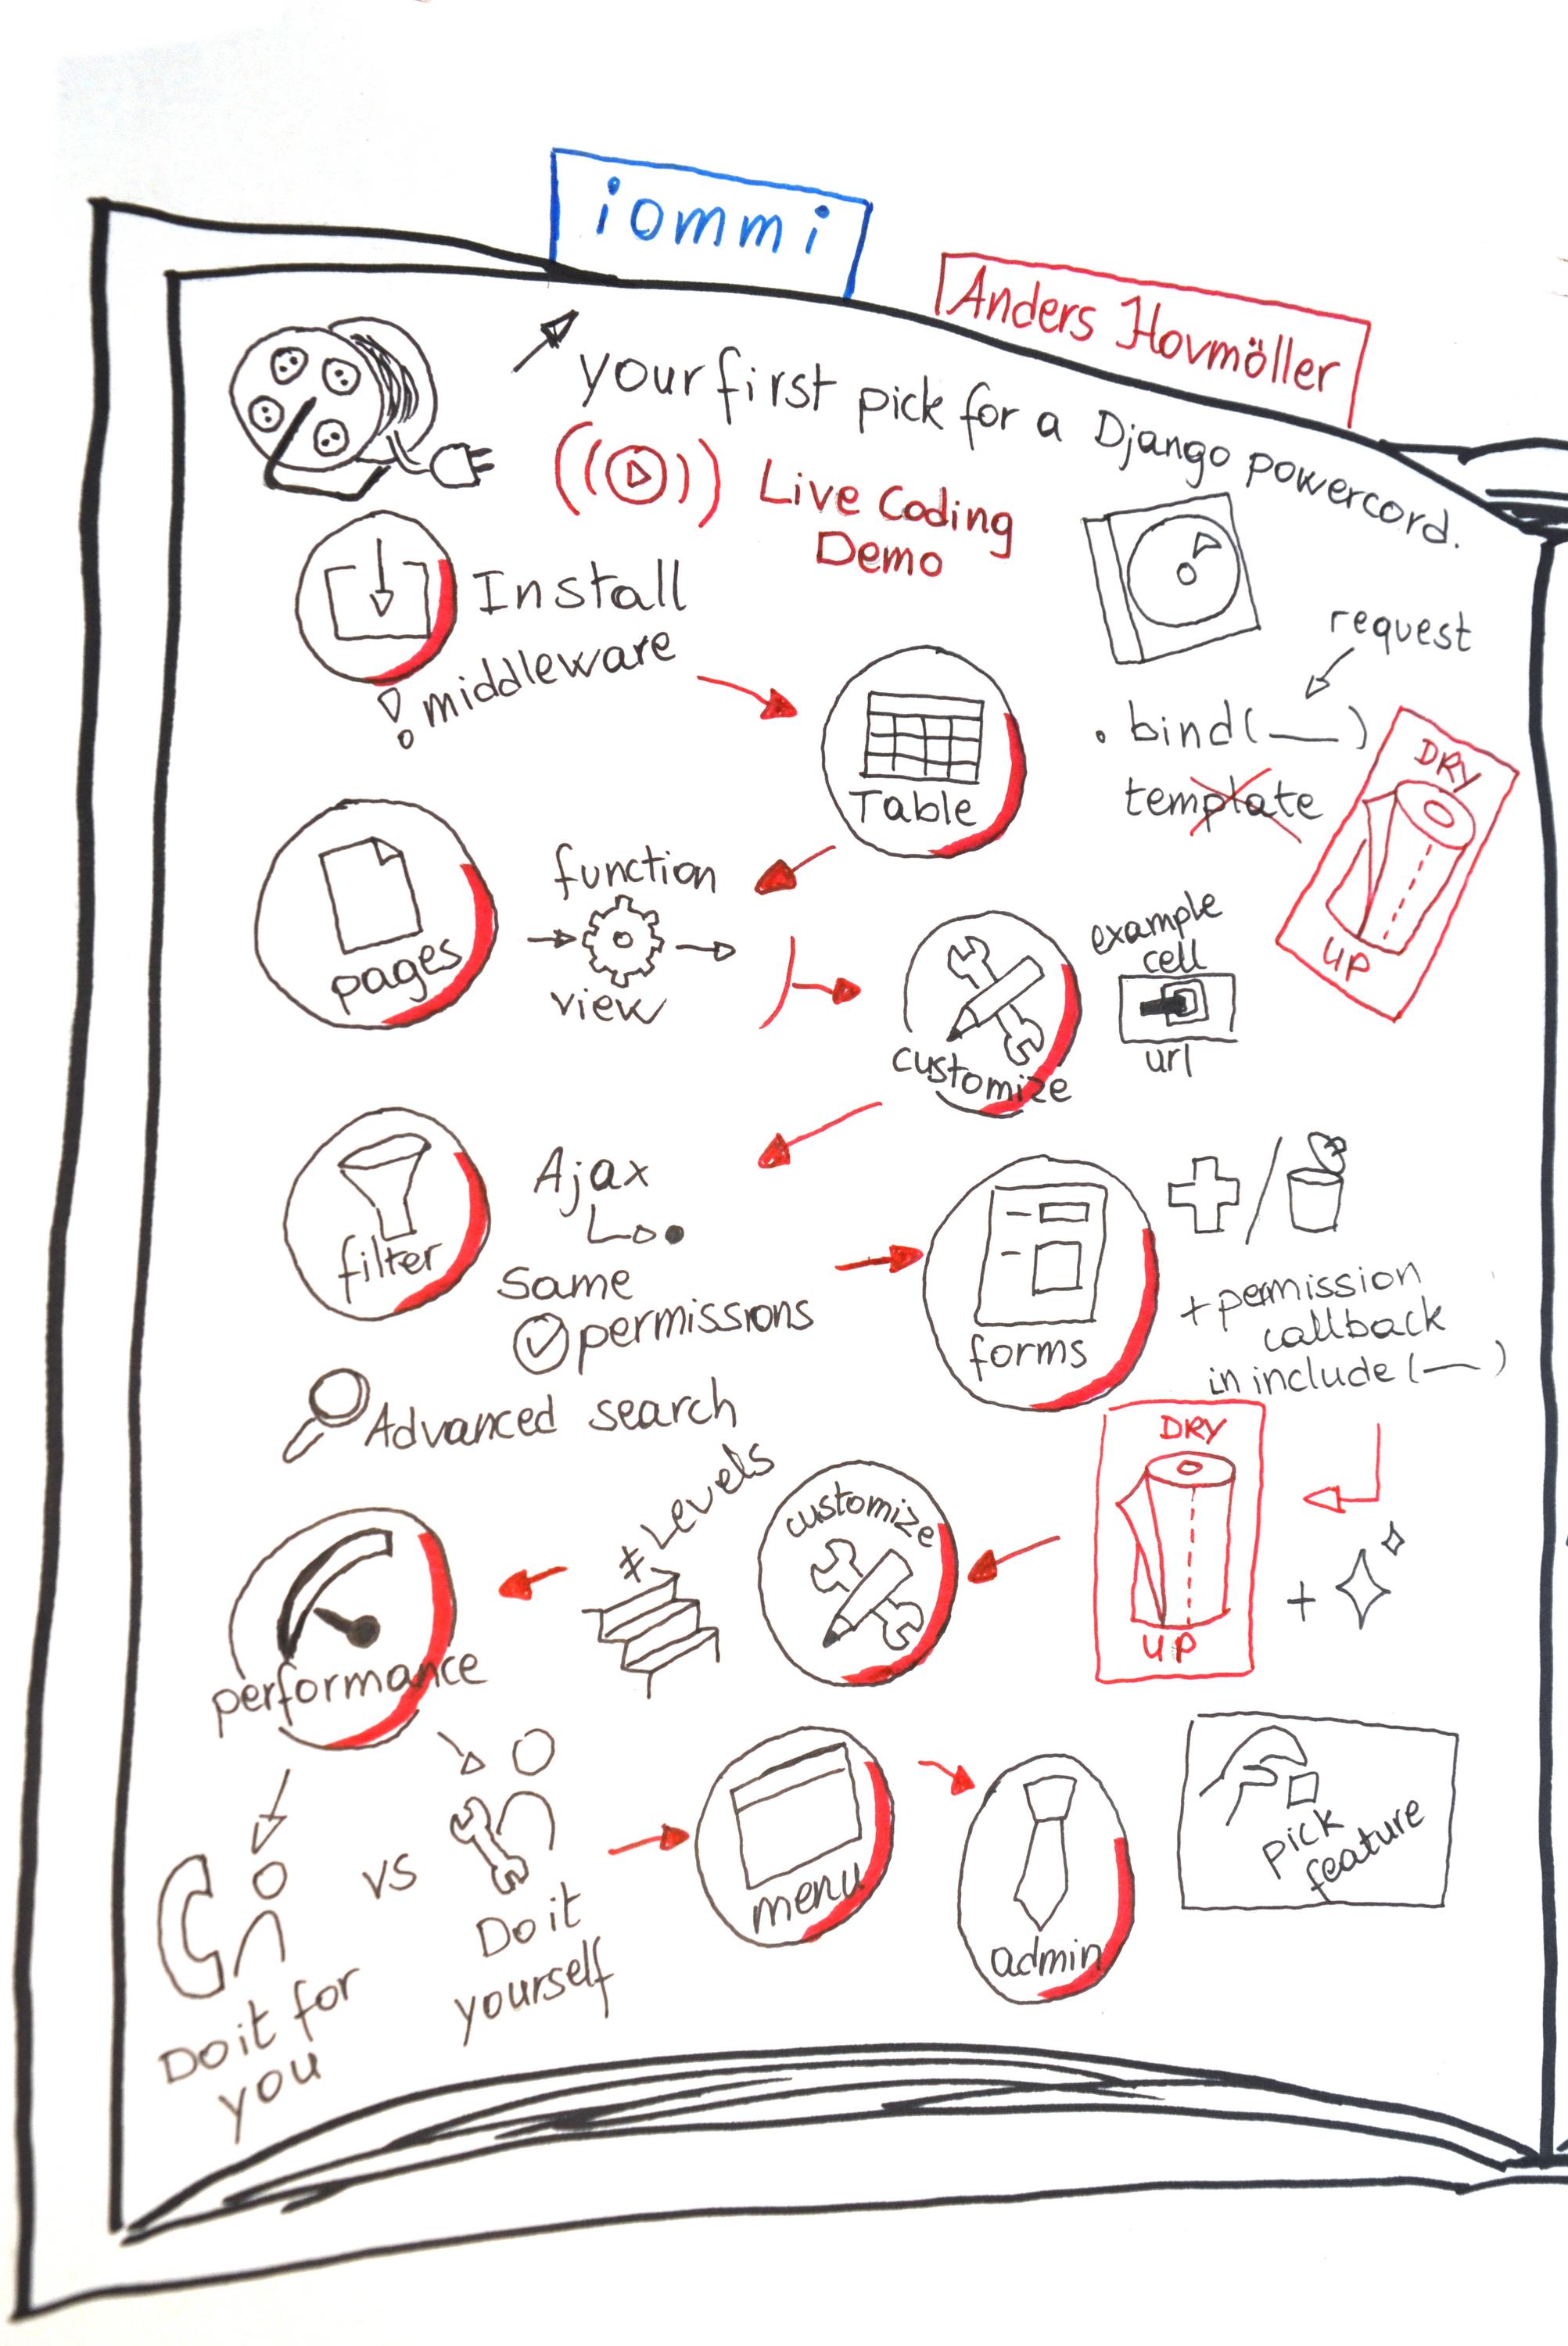 iommi
Anders Hovmöller
your first pick for a Django powercord.
Live Coding
Demo
Install
! middleware
Table
request
.bind(__)
template
DRY
UP
pages
function
view
customize
example
cell
url
filter
Ajax
Same
permissions
Advanced search
forms
+ permission
callback
in include (__)
DRY
UP
+
customize
≠ Levels
performance
Do it for
you
vs
Do it
yourself
menu
admin
pick
feature